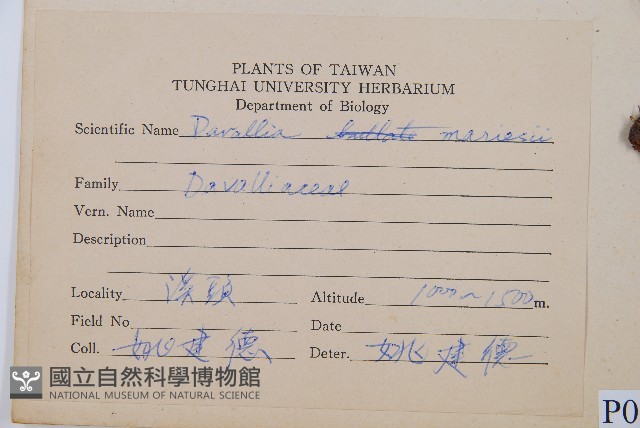 PLANTS OF TAIWAN
TUNGHAI UNIVERSITY HERBARIUM
Department of Biology
Scientific Name Davallia bullata mariesii
Family Davalliaceae
Vern. Name
Description
Locality 溪頭 Altitude 1000~1500 m.
Field No. Date
Coll. 姚建德 Deter. 姚建德
國立自然科學博物館
NATIONAL MUSEUM OF NATURAL SCIENCE
P0